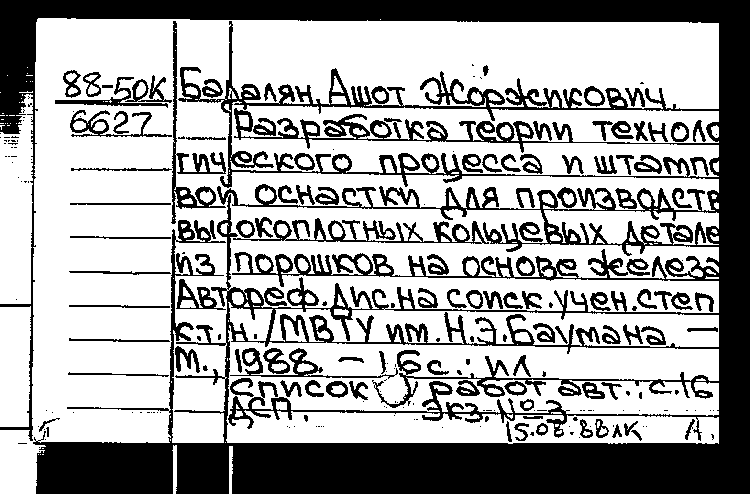 88-50К Бадалян, Ашот Жоржикович.
6627 Разработка теории техноло
гического процесса и штампо
вой оснастки для производств
высокоплотных кольцевых детале
из порошков на основе железа
Автореф. дис. на соиск. учен. степ
к.т.н. /МВТУ им. Н.Э. Баумана. —
М., 1988. — 16 с.: ил.
список работ авт.: с. 16
ДСП. Экз. №3.
15.08.88 ЛК А.